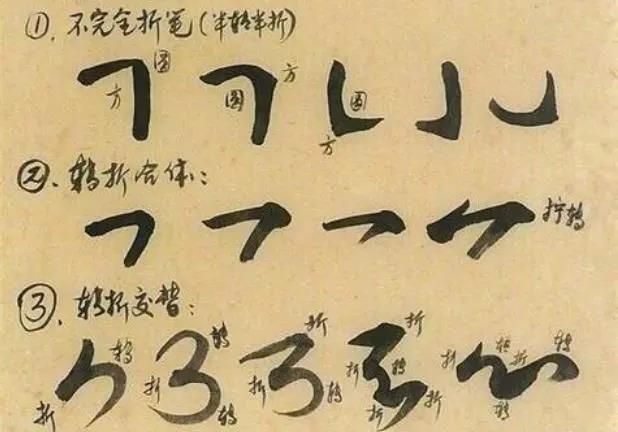 ①、不完全折笔（半转半折）
方 圆 圆 方 圆 方
②、转折合体：
拧转
③、转折交替：
折 转 折 转 转 折 折 转 折 折 转 折 折 折 折 转 转